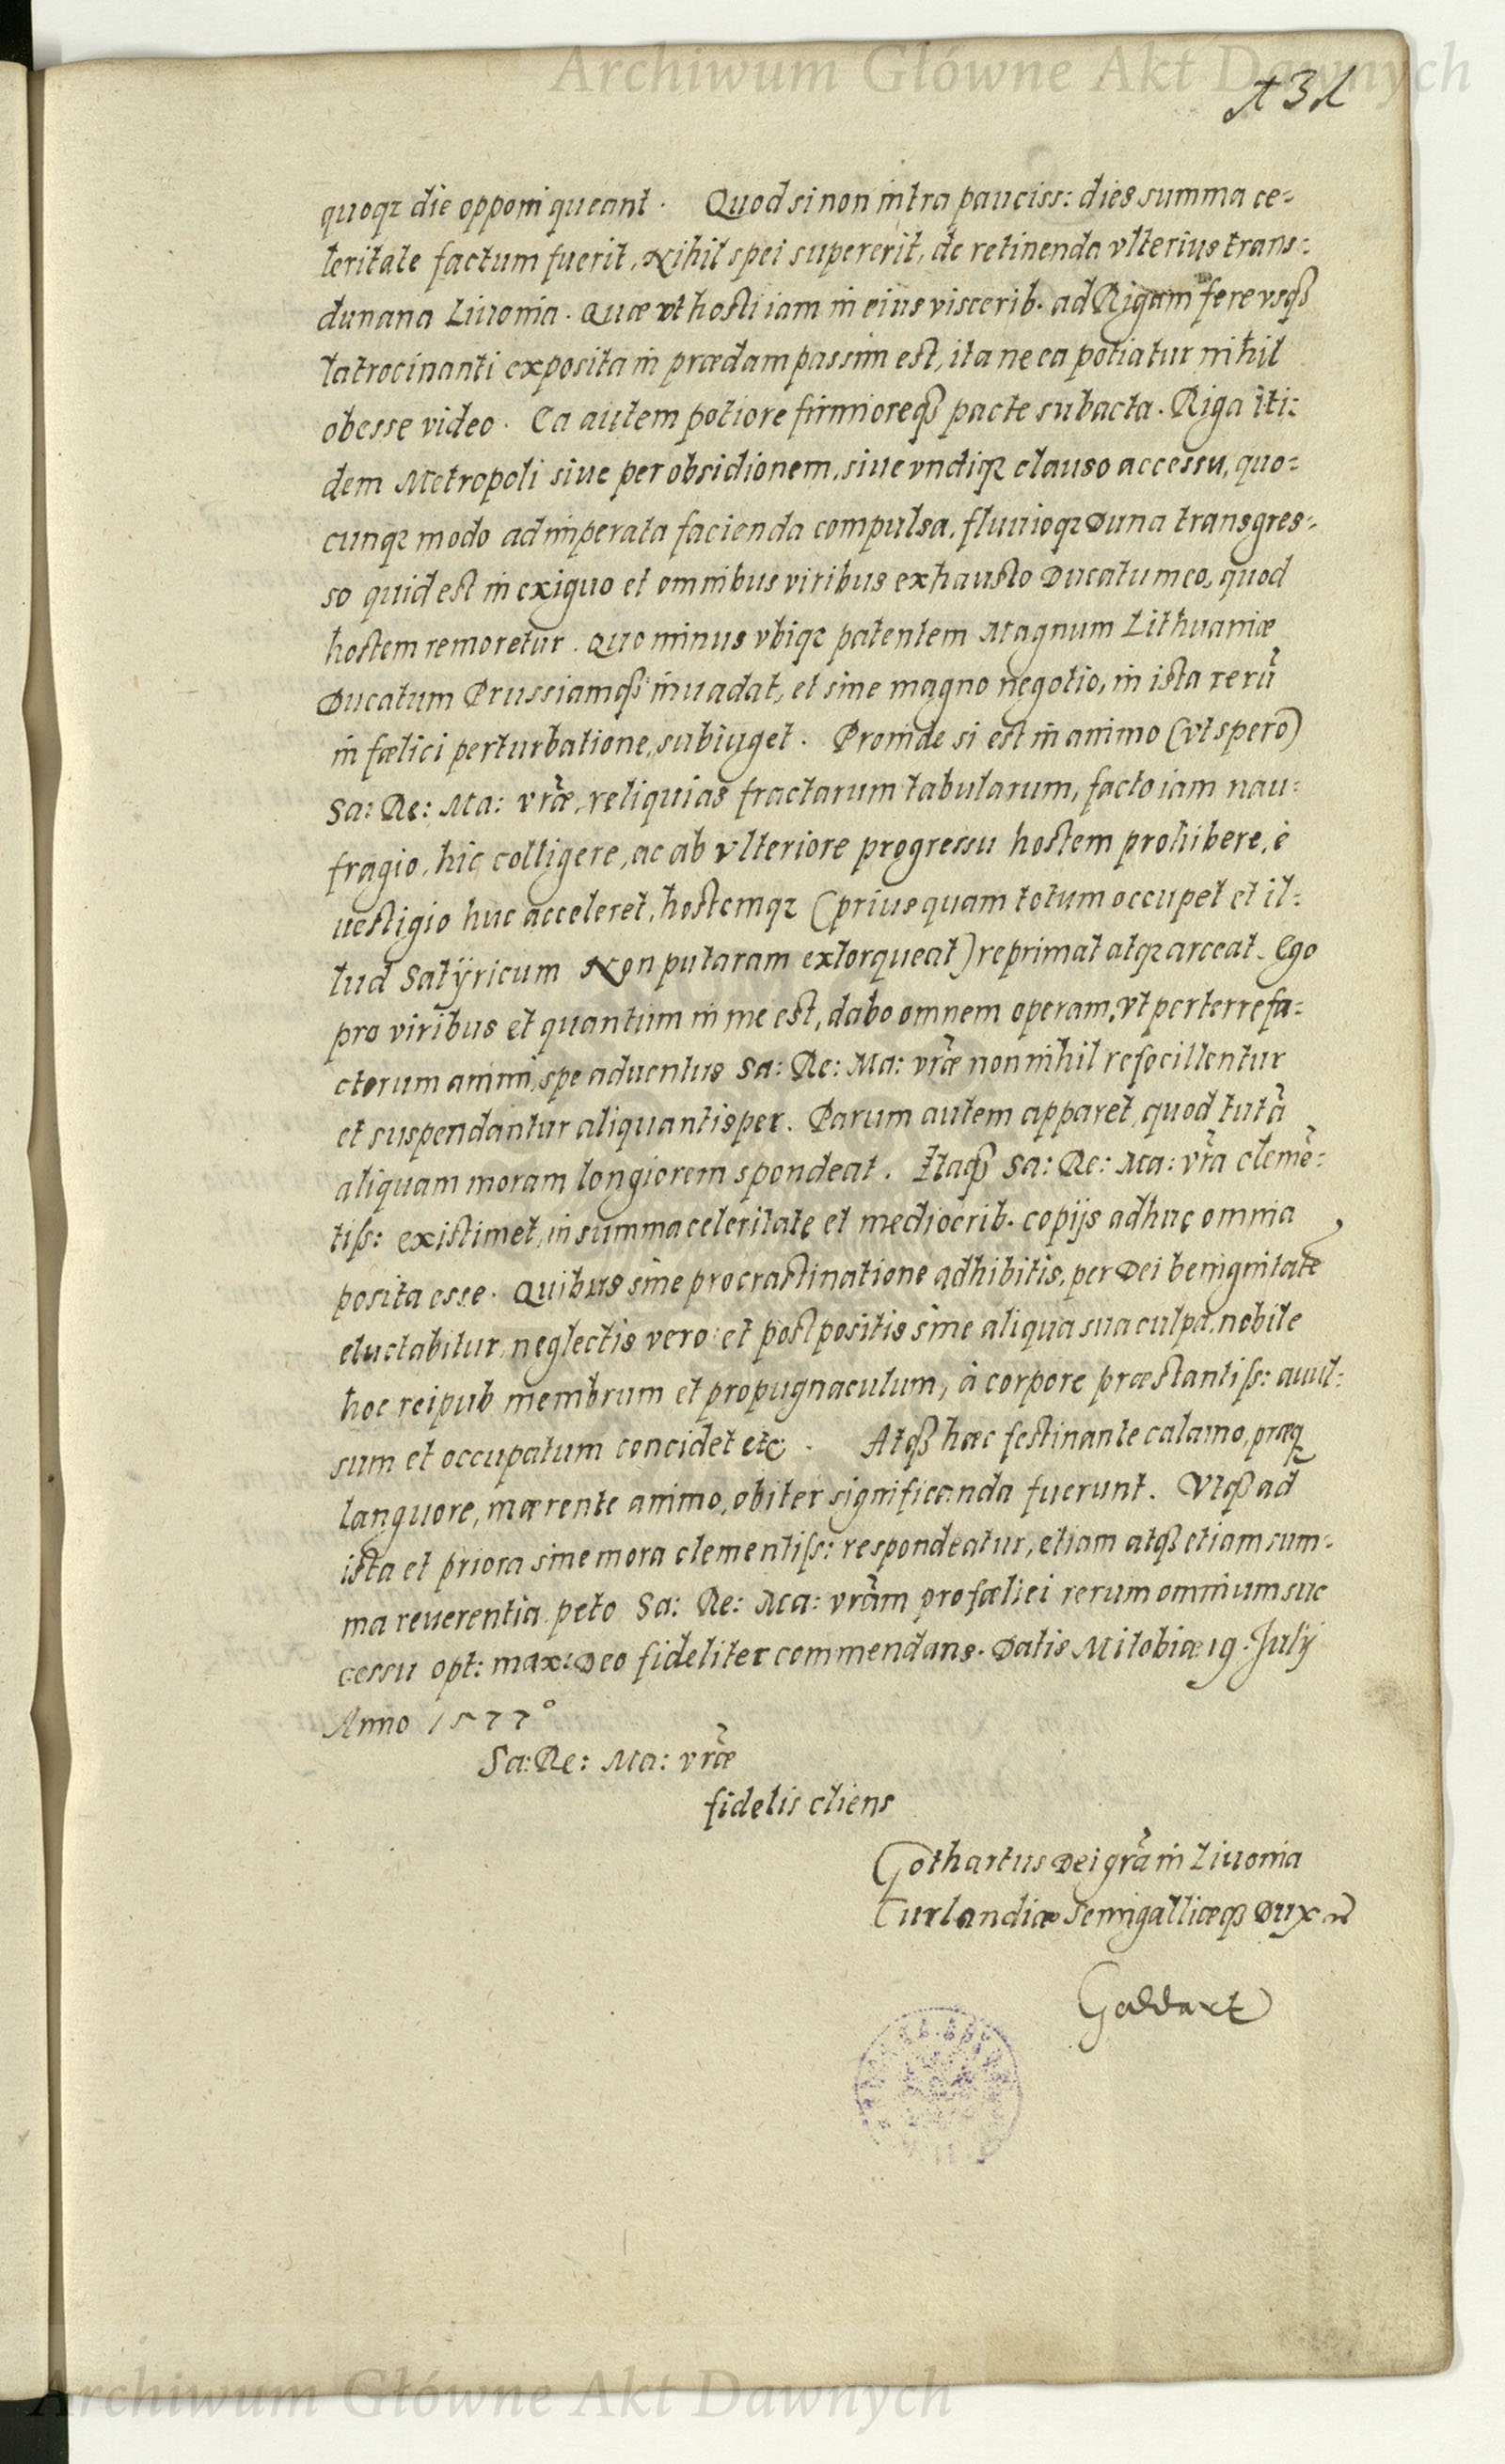 Archiwum Główne Akt Dawnych
131
quoqȝ die opponi queant. Quod si non intra pauciss: dies summa ce=
leritate factum fuerit, Nihil spei supererit, de retinenda vlterius trans=
dunana Liuonia. Quæ vt hosti iam in eius viscerib. ad Rigam fere vsqȝ
latrocinanti exposita in prædam passim est, ita ne ea potiatur nihil
obesse video. Ea autem potiore firmioreqȝ pacte subacta. Riga iti=
dem Metropoli siue per obsidionem, siue vndiqȝ clauso accessu, quo=
cunqȝ modo ad imperata facienda compulsa, fluuioqȝ Duna transgres=
so quid est in exiguo et omnibus viribus exhausto Ducatu meo, quod
hostem remoretur. Quo minus vbiqȝ patentem Magnum Lithuaniæ
Ducatum Prussiamqȝ inuadat, et sine magno negotio, in ista rerū
infælici perturbatione, subiuget. Proinde si est in animo (vt spero)
Sa: Re: Ma: vr̄æ, reliquias fractarum tabularum, facto iam nau=
fragio, hic colligere, ac ab vlteriore progressu hostem prohibere, è
uestigio huc acceleret, hostemqȝ (priusquam totum occupet et il=
lud Satÿricum Non putaram extorqueat) reprimat atqȝ arceat. Ego
pro viribus et quantum in me est, dabo omnem operam, vt perterrefa=
ctorum animi, spe aduentus Sa: Re: Ma: vr̄æ nonnihil refocillentur
et suspendantur aliquantisper. Parum autem apparet, quod tutā
aliquam moram longiorem spondeat. Itaqȝ Sa: Re: Ma: vr̄a clemē=
tiss: existimet, in summa celeritate et mediocrib. copijs adhuc omnia
posita esse. Quibus sine procrastinatione adhibitis, per Dei benignitatē
eluctabitur, neglectis vero et postpositis sine aliqua sua culpa, nobile
hoc reipub membrum et propugnaculum, à corpore præstantiss: auul=
sum et occupatum concidet etc. Atqȝ hæc festinante calamo, præqȝ
languore, mærente animo, obiter significanda fuerunt. Vtqȝ ad
ista et priora sine mora clementiss: respondeatur, etiam atqȝ etiam sum=
ma reuerentia peto Sa: Re: Ma: vr̄am pro fælici rerum omnium suc
cessu opt: max: Deo fideliter commendans. Datis Mitobiæ 19. Julij
Anno 1577°
Sa: Re: Ma: vr̄æ
fidelis cliens
Gothartus Dei gr̄a in Liuonia
Curlandiæ Semigalliæqȝ Dux
Goddart
Archiwum Główne Akt Dawnych